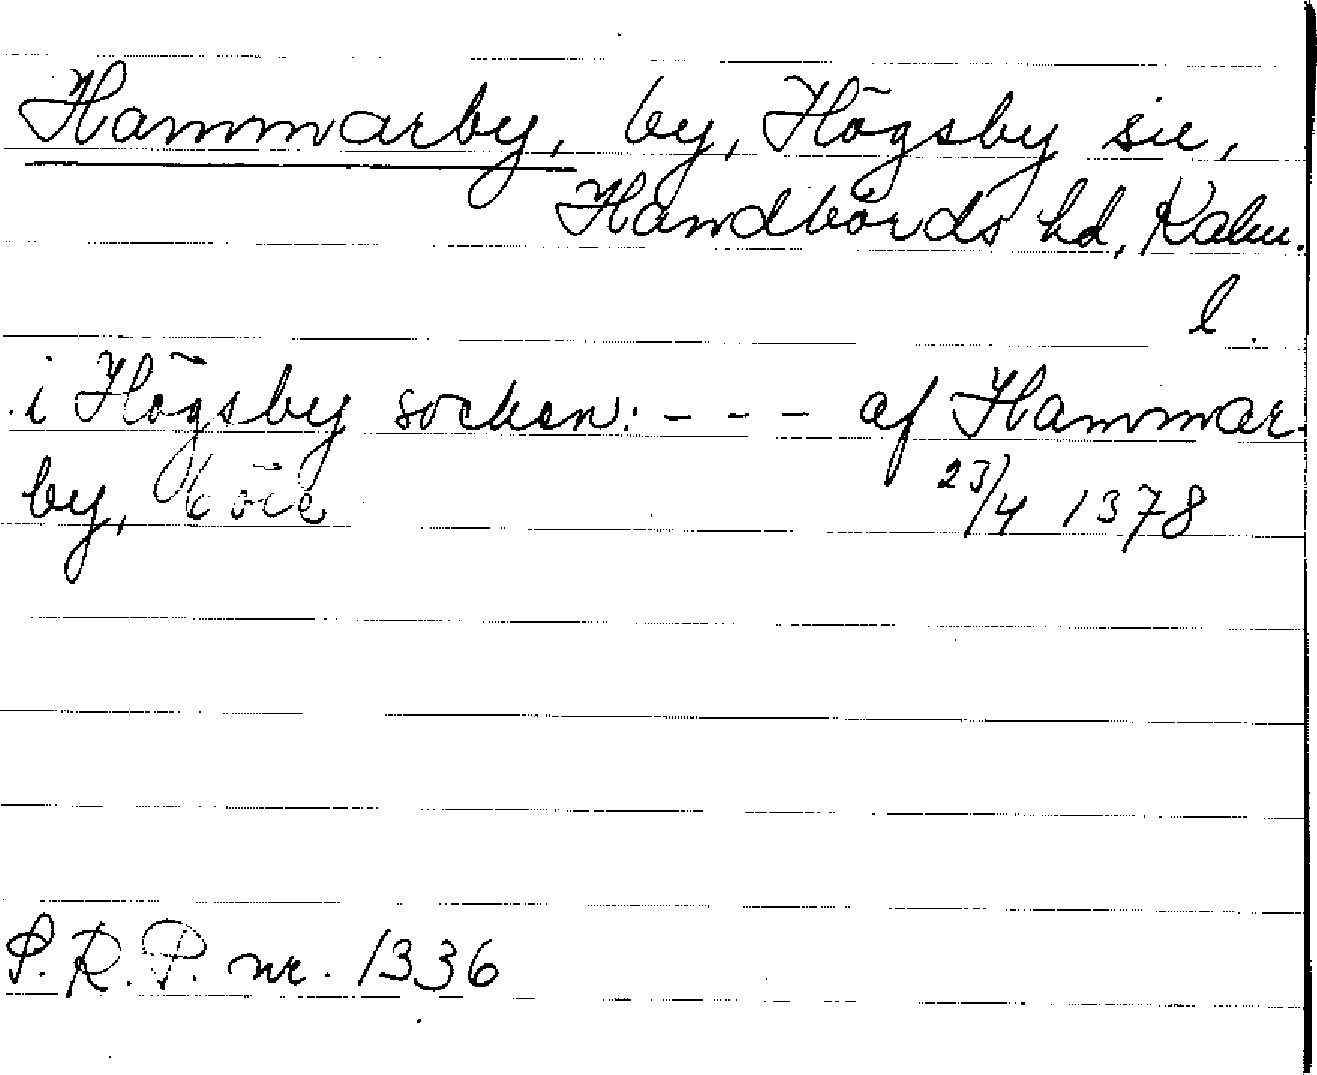 Hammarby, by, Högsby sn,
Handbörds hd, Kalm.
l.
i Högsby socken: - - - af Hammar-
by, 6 öre 23/4 1378
S.R.P. nr. 1336